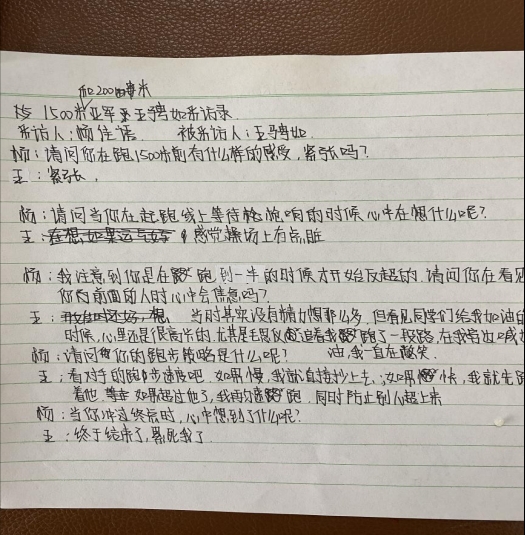 和200米
1500米亚军王骋如采访录
采访人:顾佳语 被采访人:王骋如
顾:请问你在跑1500米前有什么样的感受,紧张吗?
王:紧张。
顾:请问当你在起跑线上等待枪响的时候心中在想什么呢?
王:感觉操场上有点脏
顾:我注意到你是在跑到一半的时候才开始反超的,请问你在看见
你前面的人时心中会焦急吗?
王:当时其实没有精力想那么多,但看见同学们给我加油的
时候,心里还是很高兴的,尤其是毛思仪追着我跑了一段路,在我旁边喊加
油,我一直在憋笑。
顾:请问你的跑步策略是什么呢?
王:看对手的跑步速度吧,如果慢,我就直接抄上去;如果快,我就先跟
着他,如果超过他了,我再匀速跑,同时防止别人超上来
顾:当你冲过终点时,心中想到了什么呢?
王:终于结束了,累死我了。